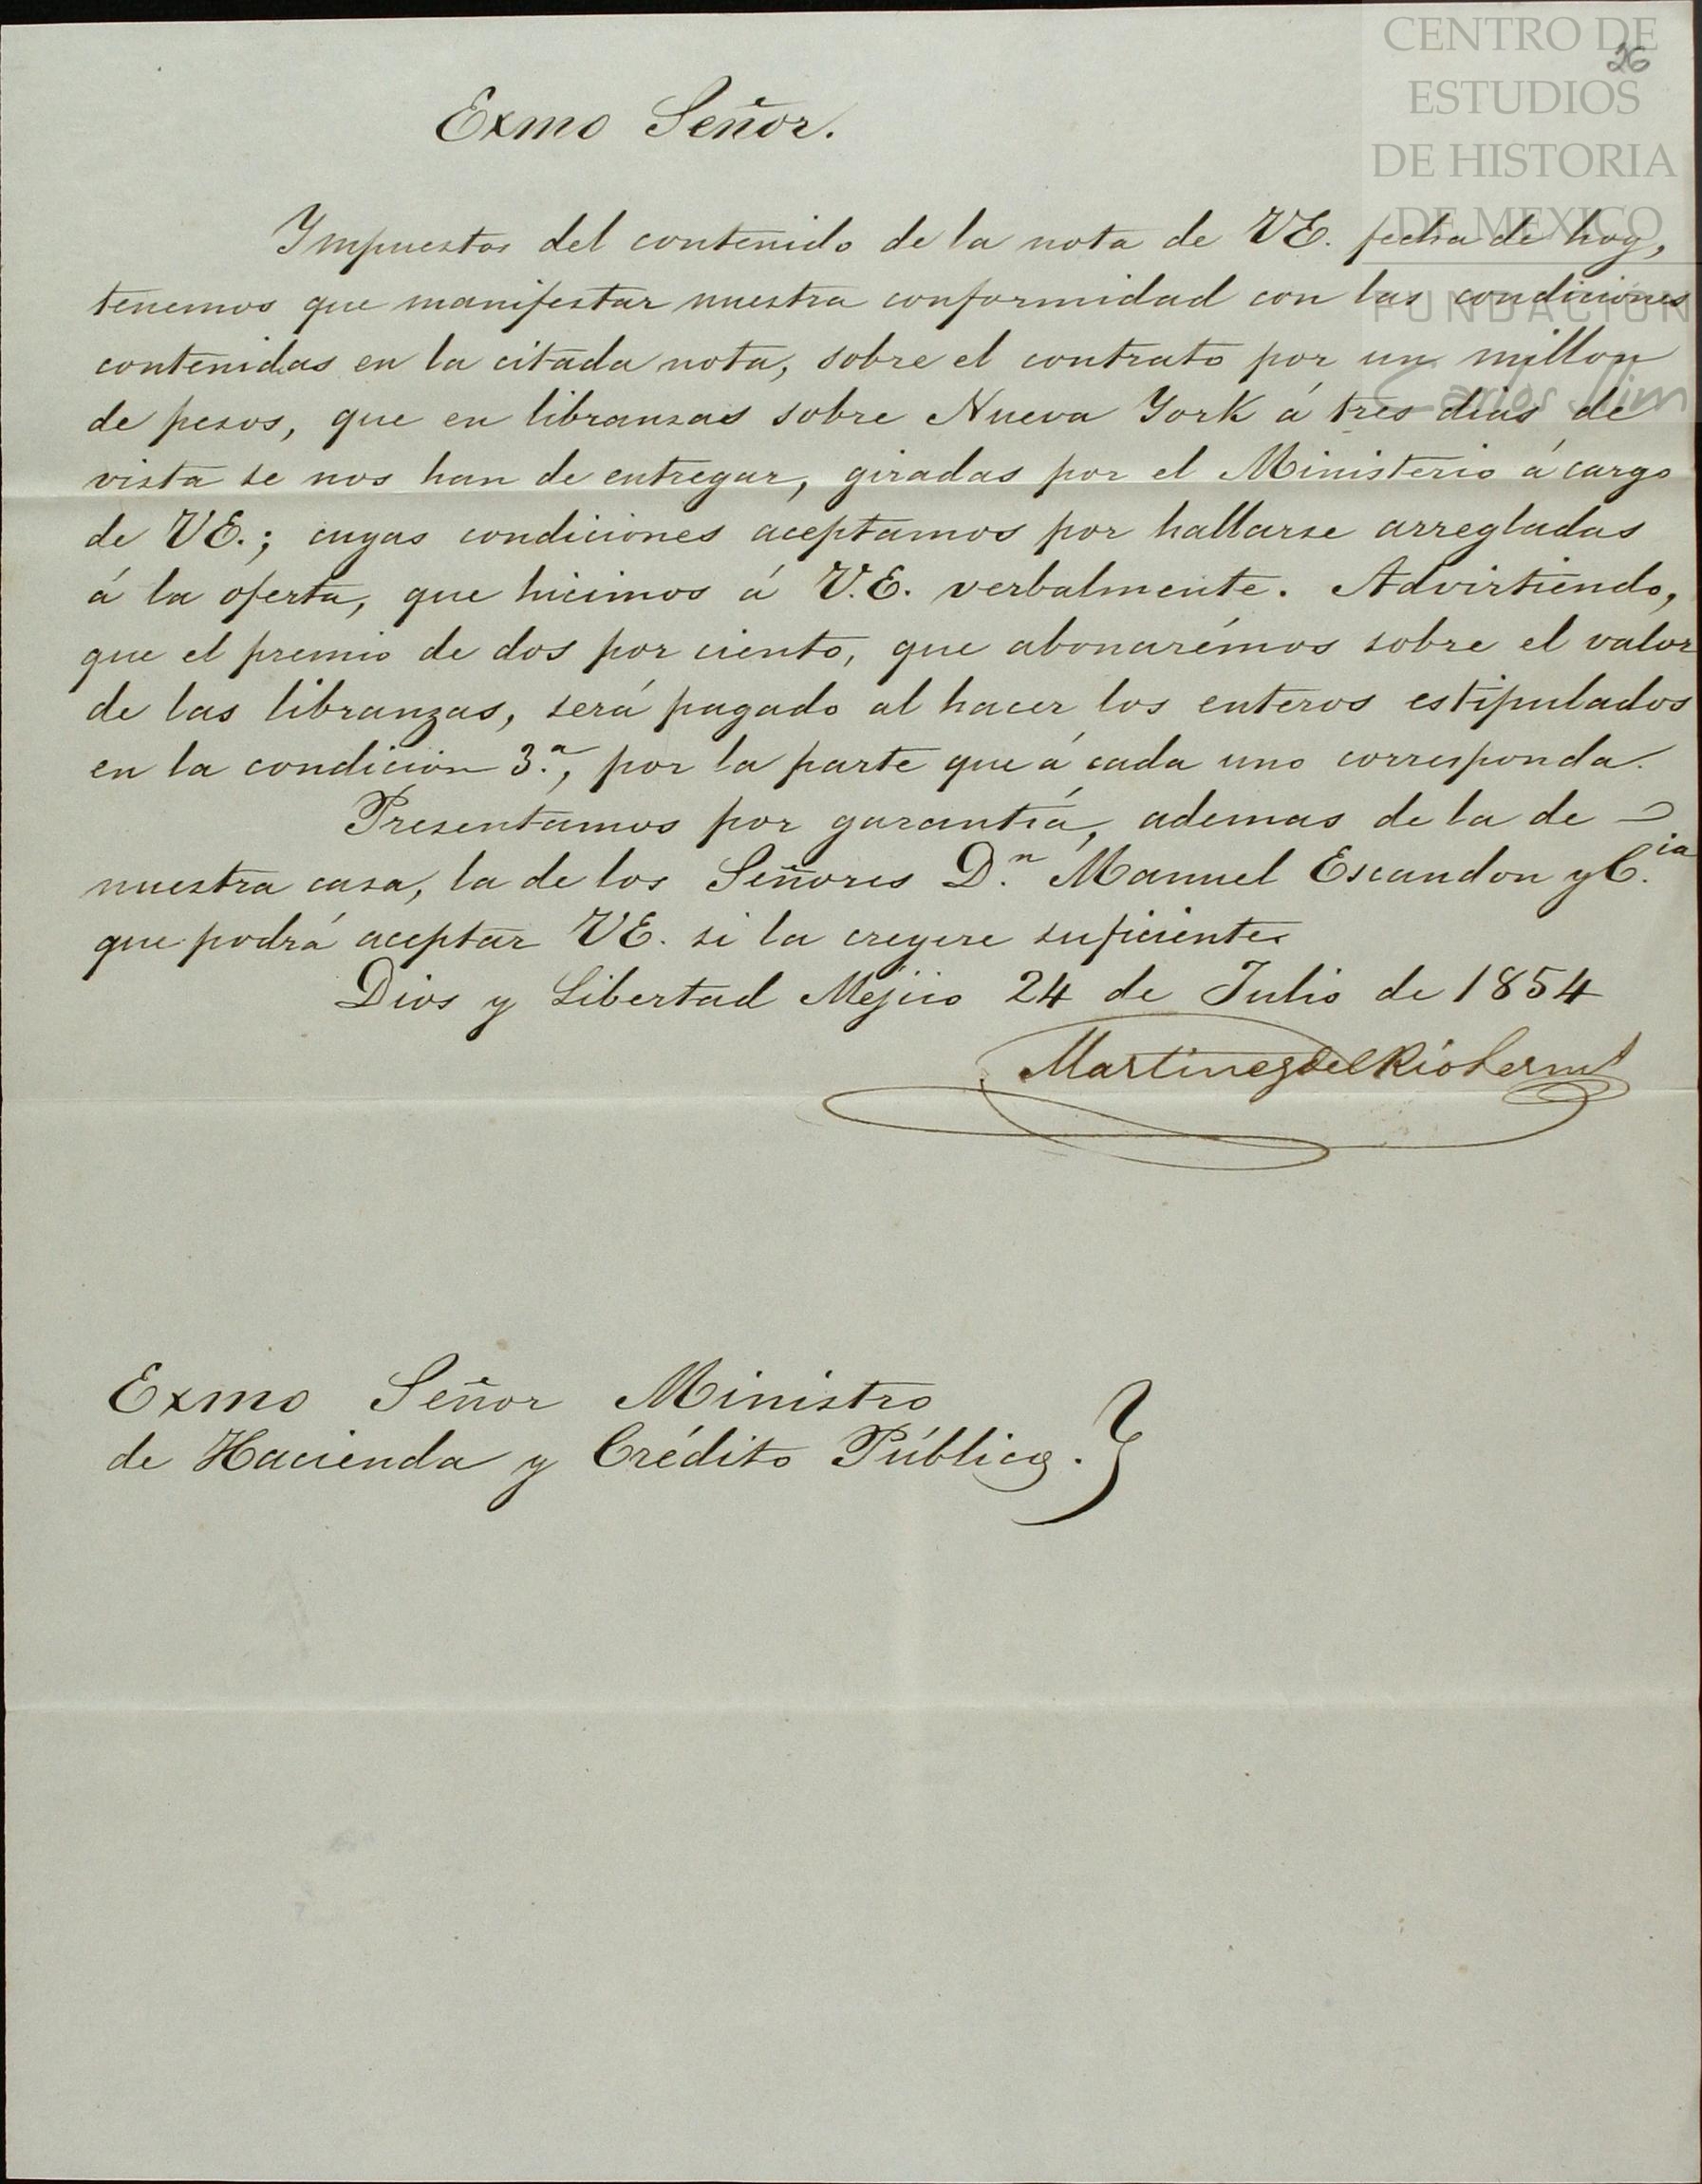 CENTRO DE
ESTUDIOS
DE HISTORIA
DE MEXICO
FUNDACIÓN
Carlos Slim
26
Exmo Señor.
Impuestos del contenido de la nota de VE. fecha de hoy,
tenemos que manifestar nuestra conformidad con las condiciones
contenidas en la citada nota, sobre el contrato por un millon
de pesos, que en libranzas sobre Nueva York á tres dias de
vista se nos han de entregar, giradas por el Ministerio á cargo
de VE.; cuyas condiciones aceptamos por hallarse arregladas
á la oferta, que hicimos á V.E. verbalmente. Advirtiendo,
que el premio de dos por ciento, que abonarémos sobre el valor
de las libranzas, será pagado al hacer los enteros estipulados
en la condicion 3.ª, por la parte que á cada uno corresponda.
Presentamos por garantía, ademas de la de
nuestra casa, la de los Señores D.n Manuel Escandon y C.ia
que podrá aceptar VE. si la creyere suficiente.
Dios y Libertad Mejico 24 de Julio de 1854
Martinez del Rio herms
Exmo Señor Ministro
de Hacienda y Crédito Público.